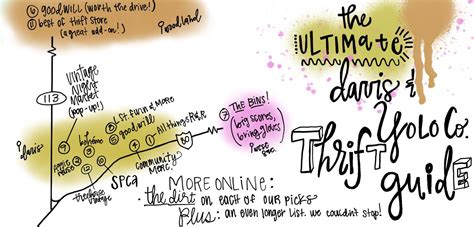 ⑥ goodwill (worth the drive!)
⑧ best of thrift store
(a great add-on!)
woodland
the
ULTIMATE
davis &
YOLO CO.
Thrift
guide
113
vintage
night
market
(pop-up!)
davis
bohème
⑤ goodwill
All things R&R
80
⑦ THE BINS!
(big scores,
bring gloves)
SPCA
community
MORE ONLINE:
the dirt on each of our picks
Plus: an even longer list. we couldn't stop!